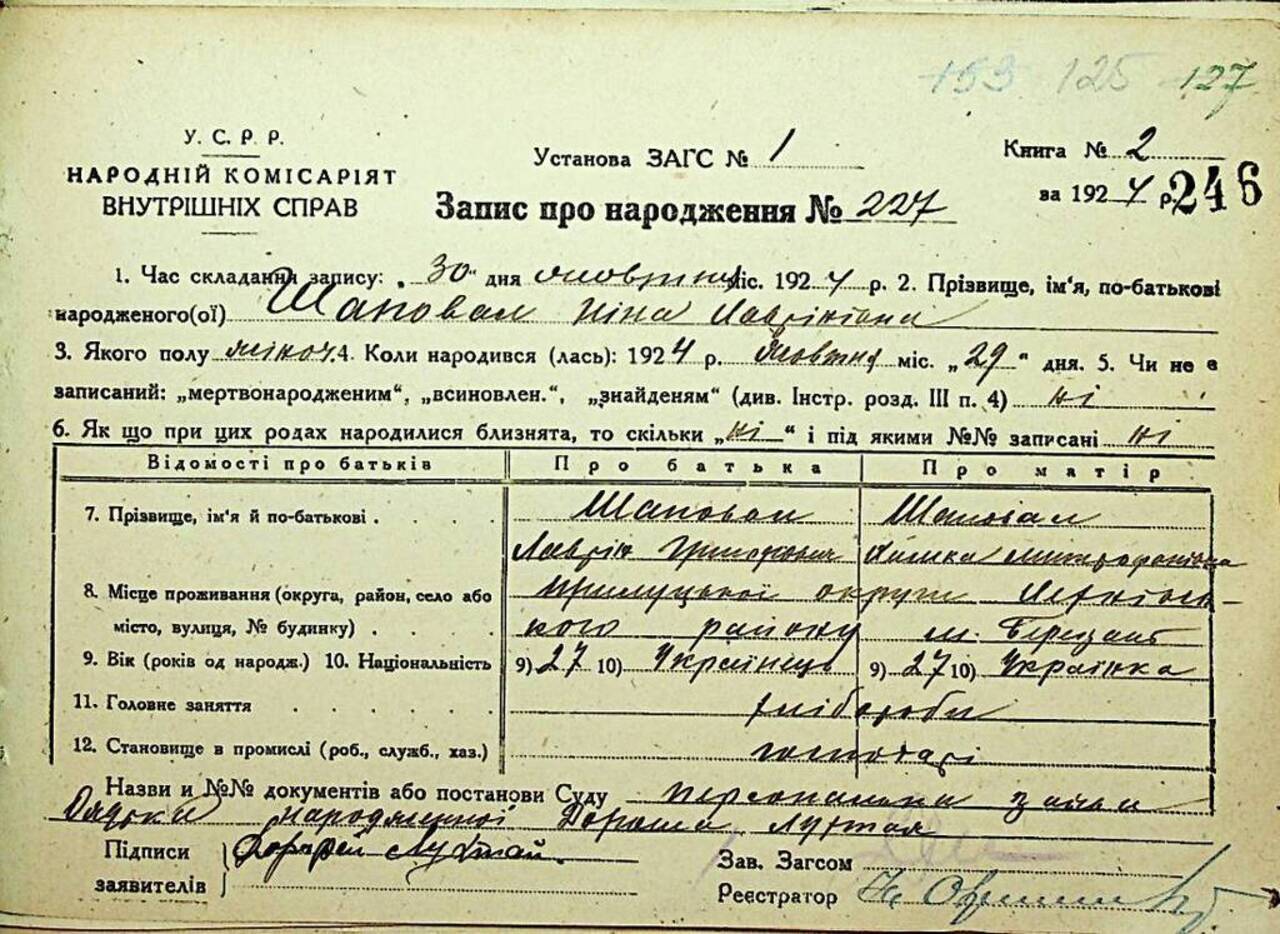 153 125 127
У. С. Р. Р.
НАРОДНІЙ КОМІСАРІЯТ
ВНУТРІШНІХ СПРАВ
Установа ЗАГС № 1
Книга № 2
за 1924 р. 246
Запис про народження № 227
1. Час складання запису: „30“ дня жовтня міс. 1924 р. 2. Прізвище, ім'я, по-батькові
народженого(ої) Шаповал Ніна Лавріківна
3. Якого полу жіноч. 4. Коли народився (лась): 1924 р. жовтня міс. „29“ дня. 5. Чи не є
записаний: „мертвонародженим“, „всиновлен.“, „знайденям“ (див. Інстр. розд. III п. 4) ні
6. Як що при цих родах народилися близнята, то скільки „ні“ і під якими №№ записані ні
Відомості про батьків Про батька Про матір
7. Прізвище, ім'я й по-батькові . . . . Шаповал Шаповал
Лаврін Митрофанівна
8. Місце проживання (округа, район, село або Прилуцької округи
місто, вулиця, № будинку) . . . . кого району м. Березань
9. Вік (років од народж.) 10. Національність 9) 27 10) Українець 9) 27 10) Українка
11. Головне заняття . . . . . . хлібороби
12. Становище в промислі (роб., служб., хаз.) господарі
Назви и №№ документів або постанови Суду персональна заява
народженної
Підписи
заявителів
Зав. Загсом
Реєстратор